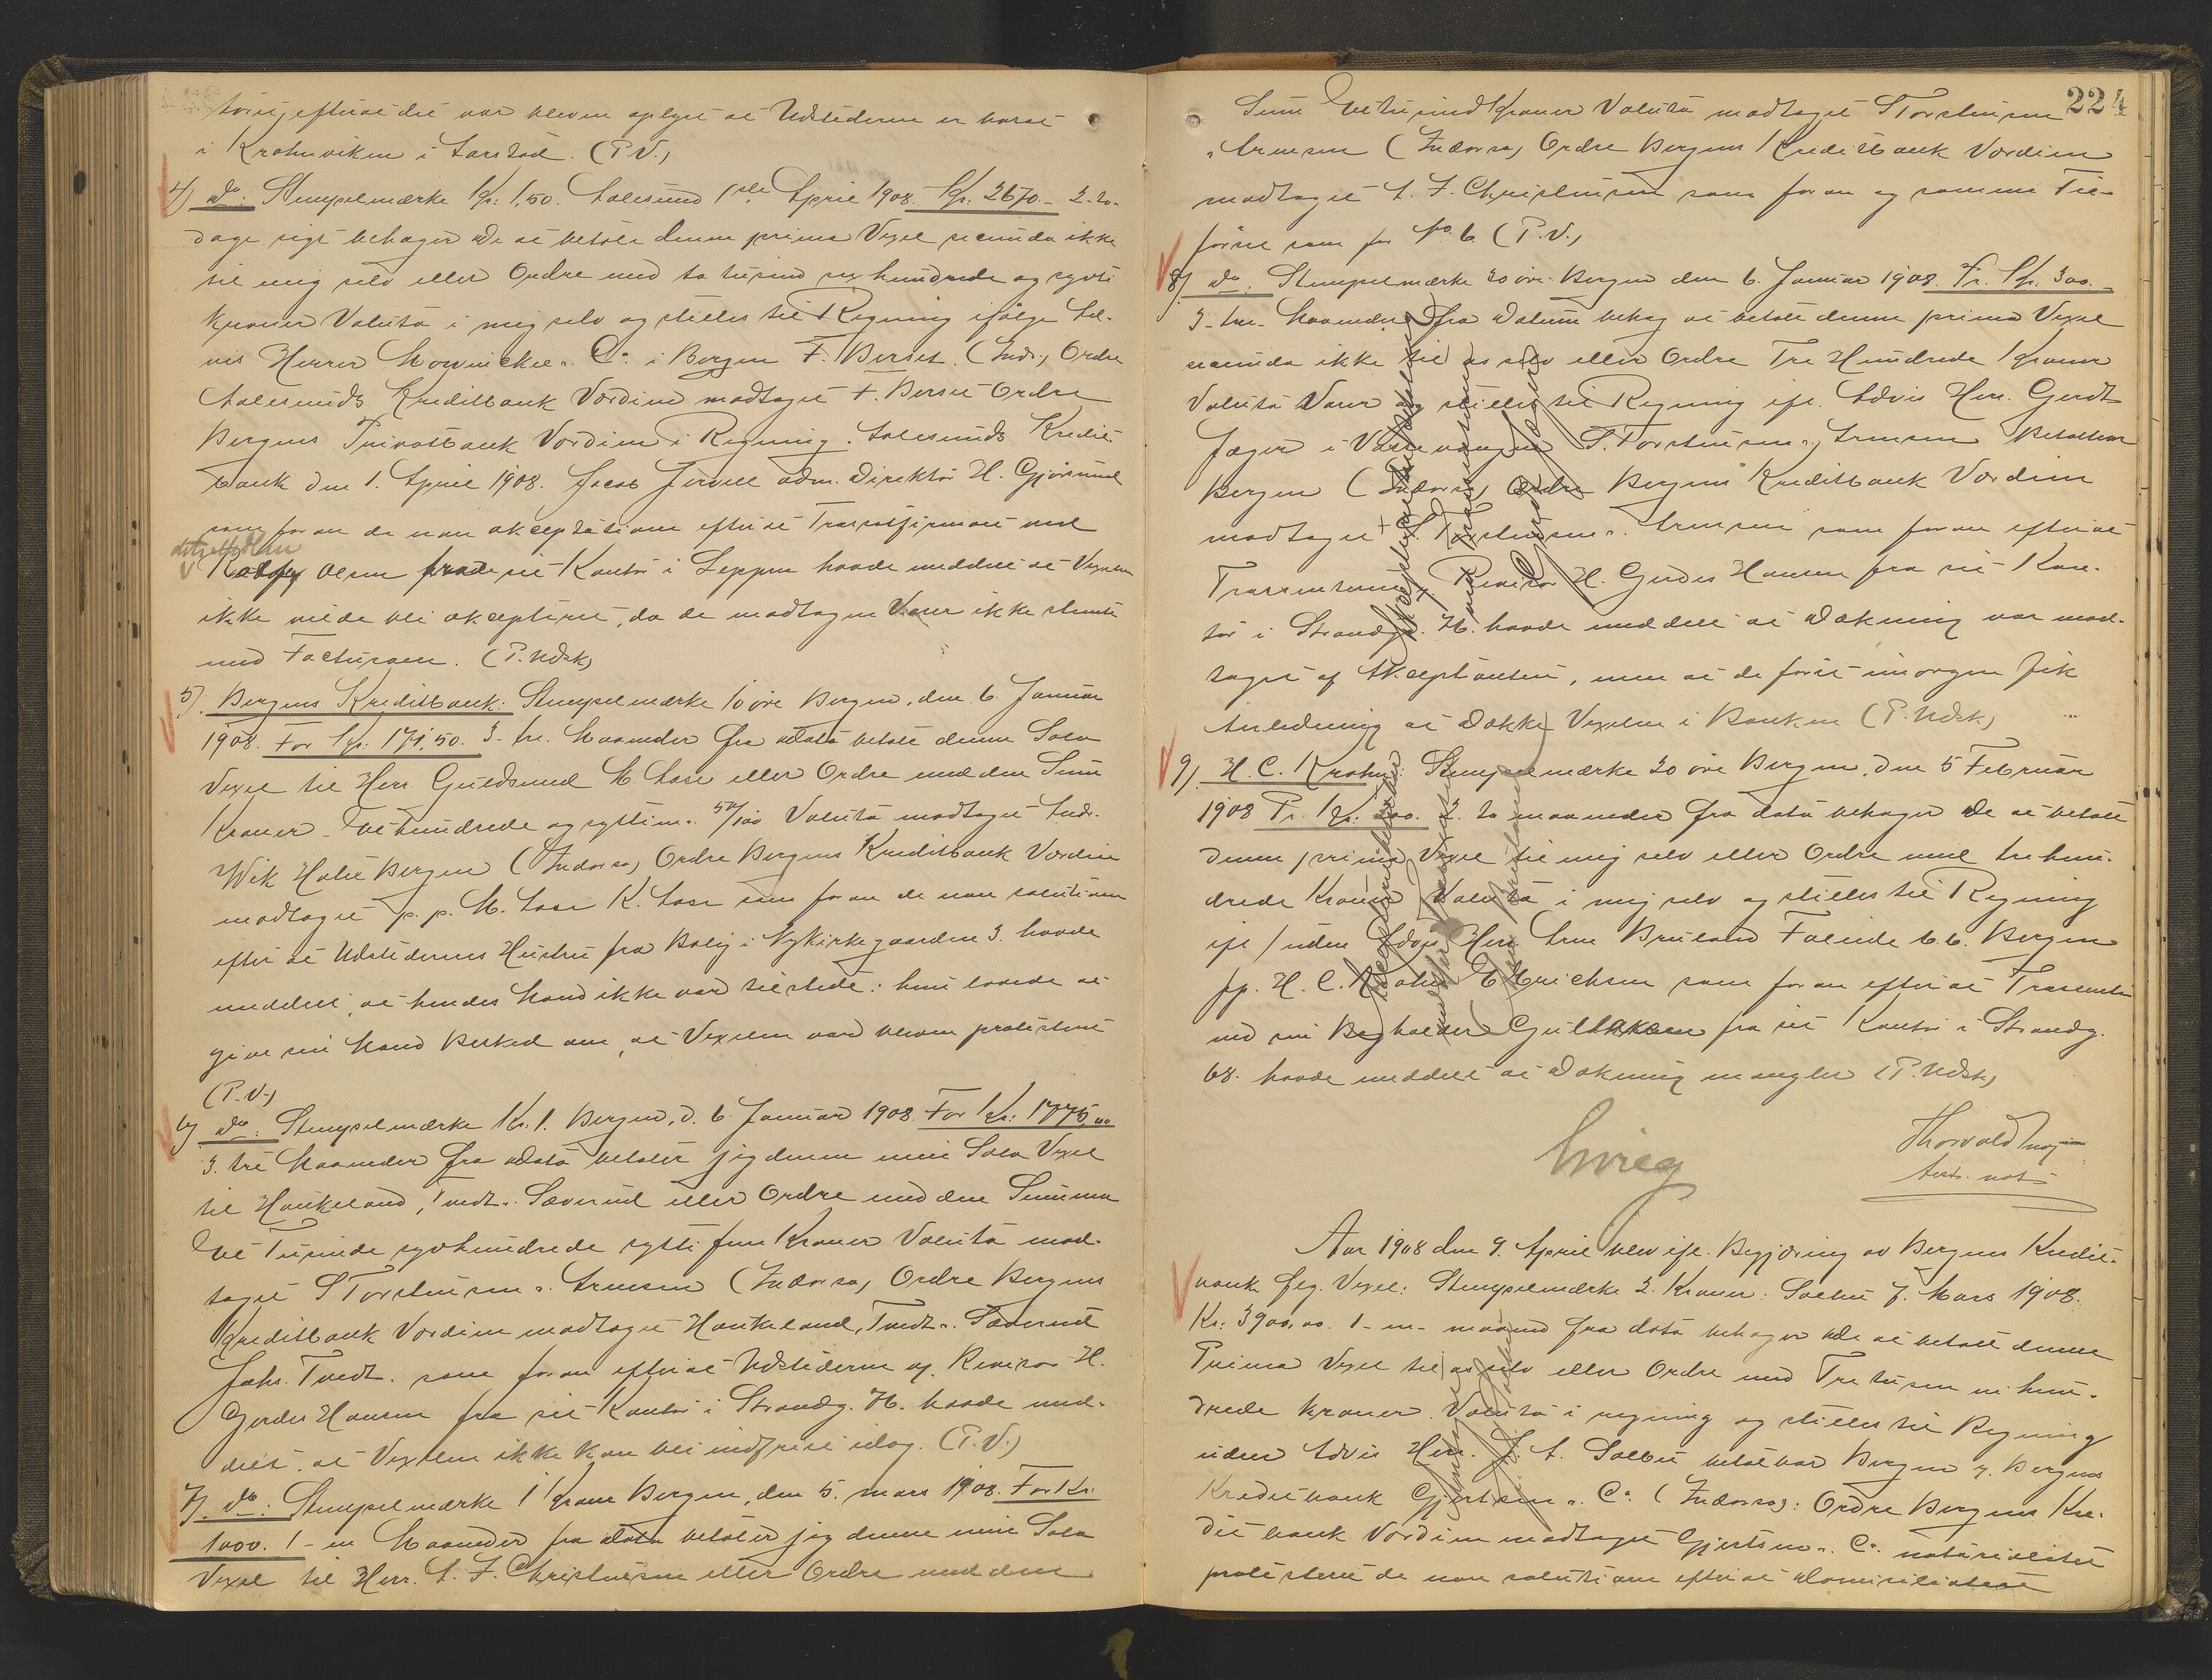 efterat det var bleven oplyst at Udstederen er
i Krohnviken i Laxevåg. (P.V.)
4) do: Stempelmærke Kr: 1,50. Aalesund 1ste April 1908. Kr: 2670.- 2-to-
dage sigt behager De at betale denne prima Vexel secunda ikke
til mig selv eller Ordre med to tusind sex hundrede og sytti
Kroner Valuta i mig selv og stilles til Regning ifølge Ad-
vis Herrer Mowinckel & Co. i Bergen F. Berset. (Inds.) Ordre
Aalesunds Kreditbank Værdien modtaget F. Berset Ordre
Bergens Privatbank Værdien i Regning. Aalesunds Kredit-
bank den 1. April 1908. Jacob Jervell adm. Direktør H. Gjørsund
som foran de non akceptationem efterat Trassatfirmaet ved
Olsen fra sit Kontor i Leppen havde meddelt at Vexelen
ikke vilde bli akcepteret, da de modtagne Varer ikke stemte
med Facturaen. (P. Udsk)
5). Bergens Kreditbank: Stempelmærke 10 øre Bergen, den 6 Januar
1908. For Kr: 175,50. 3- tre. Maaneder fra dato betale denne Sola
Vexel til Herr Guldsmed M Aase eller Ordre med den Sum
Kroner- Et hundrede og syttifem. 50/100 Valuta modtaget Andr.
Wik Hotel Bergen (Indorso) Ordre Bergens Kreditbank Værdien
modtaget p. p. M. Aase K. Aase som foran de non solutionem
efter at Udstederens Hustru fra Bolig i Nykirkegaarden 3. havde
meddelt, at hendes Mand ikke var tilstede: hun lovede at
give sin Mand Besked om, at Vexelen var bleven protesteret
(P.V.)
6) do: Stempelmærke Kr. 1. Bergen, d. 6. Januar 1908. For Kr: 1775,00
3. tre Maaneder fra dato betaler jeg denne min Sola Vexel
til Haukeland, Tvedt & Sæverud eller Ordre med den Summa
Et Tusinde syvhundrede sytti fem Kroner Valuta mod-
taget S Torstensen & Arnesen (Indorso) Ordre Bergens
Kreditbank Værdien modtaget Haukeland, Tvedt & Sæverud
Johs. Tvedt. som foran efterat Udstederen v. Revisor H.
Gerdes Hansen fra sit Kontor i Strandg. 76. havde med-
delt, at Vexelen ikke kan bli indfriet idag. (P.V.)
7). do: Stempelmærke 1 Krone Bergen, den 5. mars 1908. For Kr.
1000. 1- en Maaneder fra dato betaler jeg denne min Sola
Vexel til Herr. A. F. Christensen eller Ordre med den
224
Sum Ettusind Kroner Valuta modtaget S Torstensen
& Arnesen (Indorso) Ordre Bergens Kreditbank Værdien
modtaget A. F. Christensen som foran og samme Til-
førsel som for No 6 (P.V.)
8) do: Stempelmærke 20 øre. Bergen den 6. Januar 1908. Fr. Kr. 300.-
3- tre- Maaneder fra Datum behag at betale denne prima Vexel
secunda ikke til os selv eller Ordre Tre Hundrede Kroner
Valuta Varer og stilles til Regning ifl. Advis Herr. Gerdt
Jæger i S. Torstensen & Arnesen Betalbar
Bergen (Indorso) Ordre Bergens Kreditbank Værdien
modtaget S Torstensen & Arnesen som foran efterat
Trassenterne v. Revisor H. Gerdes Hansen fra sit Kon-
tor i Strandg. 76. havde meddelt at Dækning var mod-
taget af Akceptanten, men at de først imorgen fik
Anledning at dække Vexelen i Banken (P. Udsk)
9). H. C. Krohn: Stempelmærke 20 øre Bergen, den 5 Februar
1908 Pr. Kr: 300. 2. to maaneder fra dato behager De at betale
denne prima Vexel til mig selv eller Ordre med tre hun-
drede Kroner Valuta i mig selv og stilles til Regning
ifl / uden Advis Herr Arne Bruland 66. Bergen
pp. H. C. Krohn som foran efterat Trassenten
ved sin Bogholder fra sit Kontor i Strandg.
68. havde meddelt at Dækning mangler (P. Udsk)
Thorvald
Aar 1908 den 9. April blev ifl. Begjæring av Bergens Kredit-
bank flg. Vexel: Stempelmærke 2. Kroner: 7. Mars 1908.
Kr: 3900,00. 1- en- maaned fra dato behager De at betale denne
Prima Vexel til os selv eller Ordre med Tre tusen ni hun-
drede kroner. Valuta i regning og stilles til Regning
uden Advis Herr. betalbar Bergen v. Bergens
Kreditbank Gjertsen & Co (Indorso): Ordre Bergens Kre-
dit bank Værdien modtaget Gjertsen & Co. notarialiter
protesteret de non solutionem efterat domiciliatet